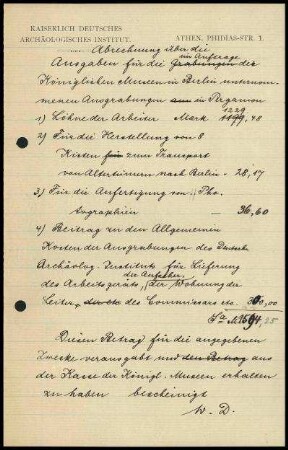 KAISERLICH DEUTSCHES
ARCHÄOLOGISCHES INSTITUT.
ATHEN, PHIDIAS-STR. 1.
Abrechnung über die
im Auftrage
Ausgaben für die Grabungen der
Königlichen Museen in Berlin unternom-
menen Ausgrabungen aus in Pergamon
1) Löhne der Arbeiter Mark 1229,48
2) Für die Herstellung von 8
Kisten für zum Transport
von Altertümern nach Berlin - 28,17
3) Für die Anfertigung von Pho-
tographien - 36,60
4) Beitrag zu den Allgemeinen
Kosten der Ausgrabungen des Deutsch.
Archäolog. Instituts für Lieferung
der Aufseher,
des Arbeitsgeräts, der Wohnung der
Leiter, des Commissars etc. 300,00
Sa M. 1594,25
Diesen Betrag für die angegebenen
Zwecke verausgabt und den Betrag aus
der Kasse der Königl. Museen erhalten
zu haben bescheinigt
W. D.